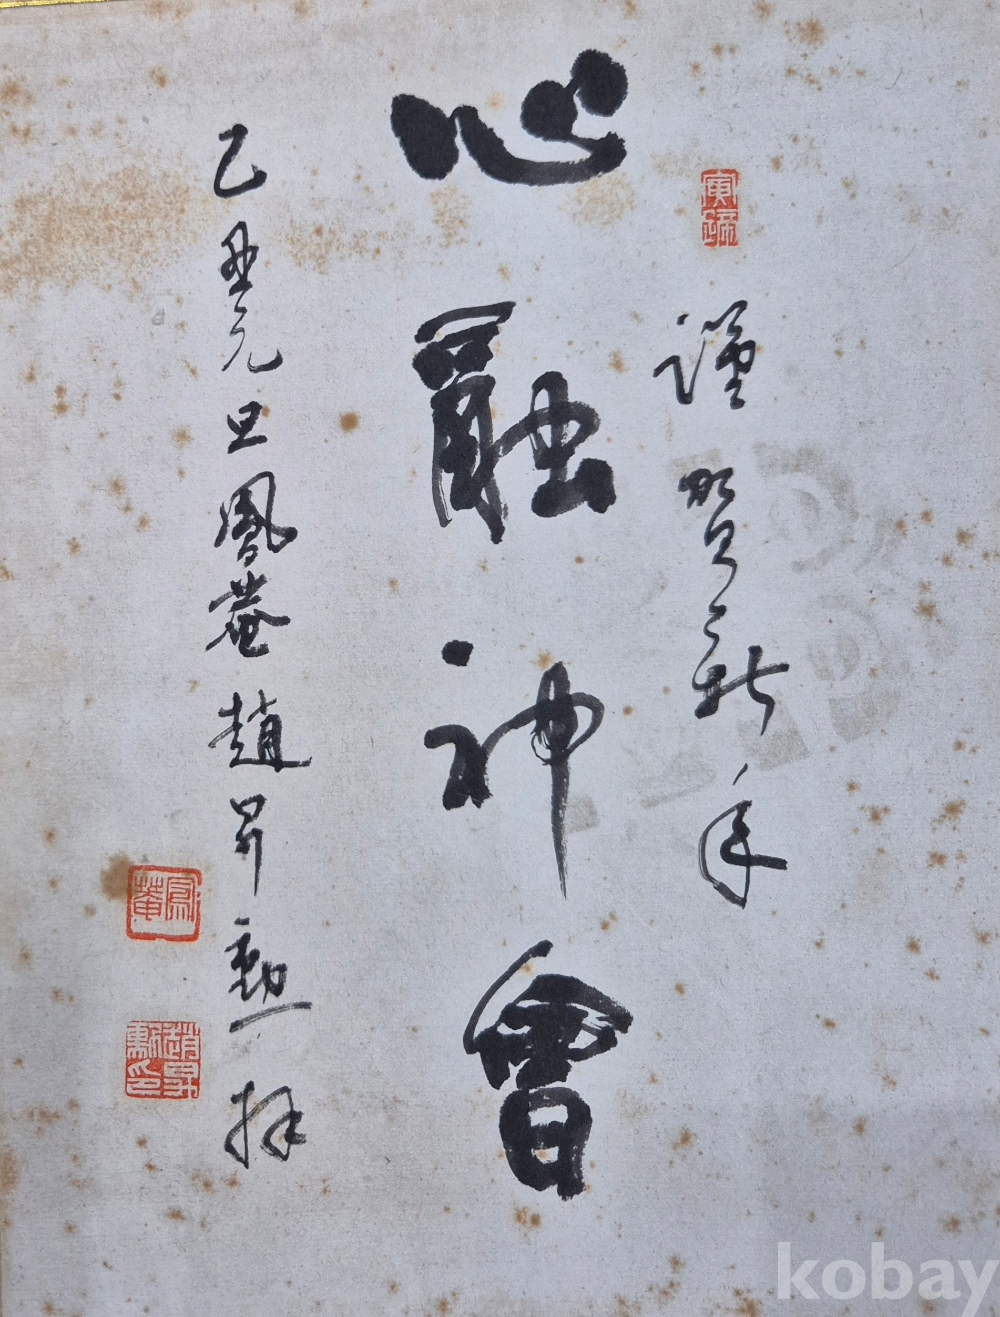 謹賀新年
心融神會
乙丑元旦鳳菴趙昇勳拜
鳳菴
趙昇勳印
kobay